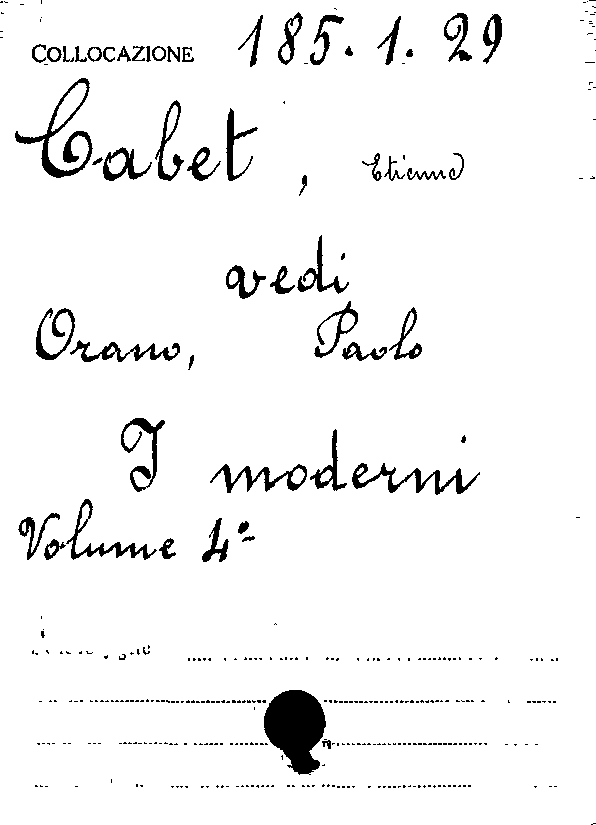 COLLOCAZIONE 185.1.29
Cabet, Etienne
vedi
Orano, Paolo
I moderni
Volume 4º